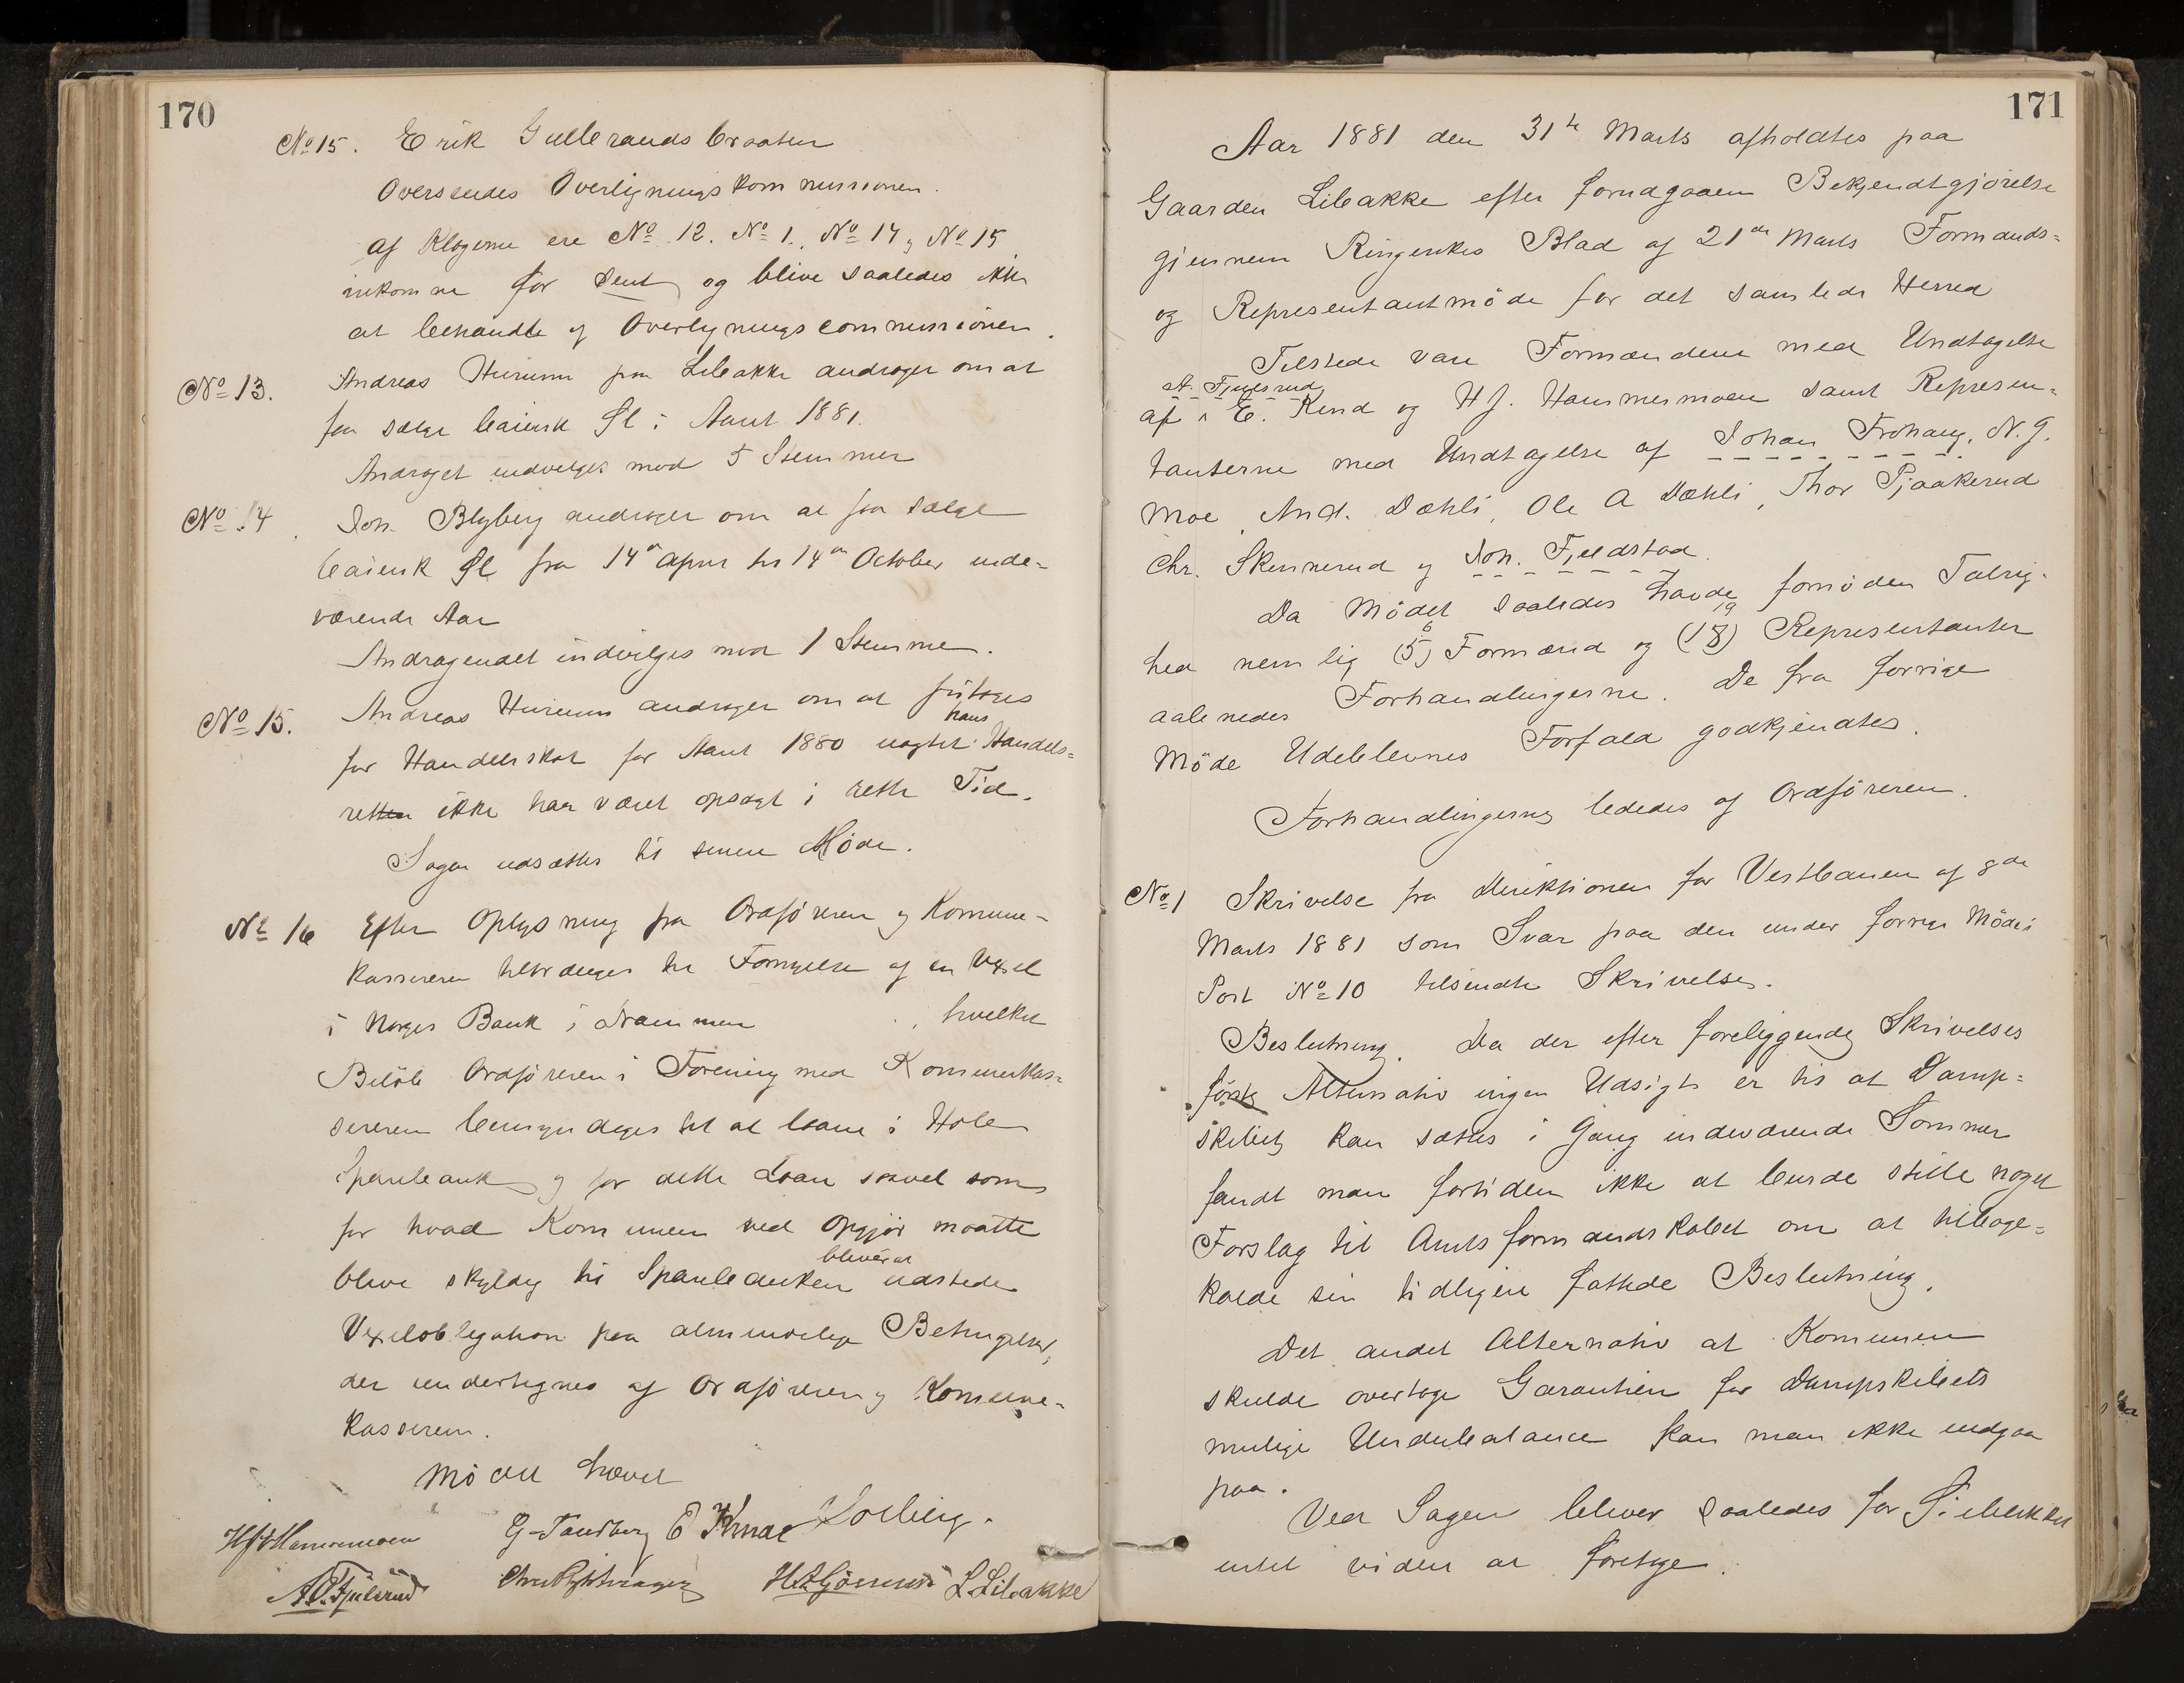 170
No 15. Erik Gullerands braaten
Oversendes Overligningskommissionen.
af Klagerne ere No 12. No 1., No 14, No 15
inkomne for sent og blive saaledes ikke
at behandle af Overligningscommissionen.
No 13. Andreas Hurum paa Libakke andrager om at
faa sælge baiersk Øl i Aaret 1881.
Andraget indvilges mod 5 Stemmer
No 14. Joh. Blyberg andrager om at faa sælge
baiersk Øl fra 14de April til 14de October inde=
værende Aar
Andragendet indvilges mod 1 Stemme.
No 15. Andreas Hurum andrager om at fritages
for Handelsskat for Aaret 1880 uagtet hans Handels=
retten ikke har været opsagt i rette Tid.
Sagen udsættes til senere Møde.
No 16 Efter Oplysning fra Ordføreren og Komune-
kassereren tiltrænges til Fornyelse af en Vexel
i Norges Bank i Drammen , hvilket
Beløb Ordføreren i Forening med Kommunekas=
sereren bemyndiges til at laane i Hole
Sparebank og for dette Laan saavel som
for hvad Kommunen ved Opgjør maatte
blive skyldig til Sparebanken bliver at udstede
Vexelobligation paa almindelige Betingelser,
der undertegnes af Ordføreren og Komune-
kassereren.
Mødet hævet
HJHammermoen G. Tandberg E Kind Solberg.
A. Fjulsrud H. Gjønnes L. Libakke
171
Aar 1881 den 31te Marts afholdtes paa
Gaarden Libakke efter forudgaaen Bekjendtgjørelse
gjennem Ringerikes Blad af 21de Marts Formands=
og Representantmøde for det samlede Herred
Tilstede vare Formændene med Undtagelse
af A. Fjulsrud, E. Kind og H J. Hammermoen samt Represen=
tanterne med Undtagelse af Johan Frøhaug, N. J.
Moe, And. Dæhli, Ole A Dæhli, Thor Pjaakerud
Chr. Skinnerud og Joh. Fjeldstad.
Da Mødet saaledes havde fornøden Talrig-
hed nemlig (5) 6 Formænd og (18) 19 Representanter
aabnedes Forhandlingerne. De fra forrige
Møde Udeblevnes Forfald godkjendtes.
Forhandlingerne lededes af Ordføreren.
No 1 Skrivelse fra Direktionen for Vestbanen af 8de
Marts 1881 som Svar paa den under forrige Møde i
Post No 10 tilsendte Skrivelse.
Beslutning. Da der efter foreliggende Skrivelses
første Alternativ ingen Udsigt er til at Damp=
skibet kan sættes i Gang indeværende Sommer
fandt man fortiden ikke at burde stille noget
Forslag til Amtsformandskabet om at tilbage=
kalde sin tidligere fattede Beslutning.
Det andet Alternativ at Kommunen
skulde overtage Garantien for Dampskibets
mulige Underbalance kan man ikke indgaa
paa.
Ved Sagen bliver saaledes for Øieblikket
intet videre at foretage.